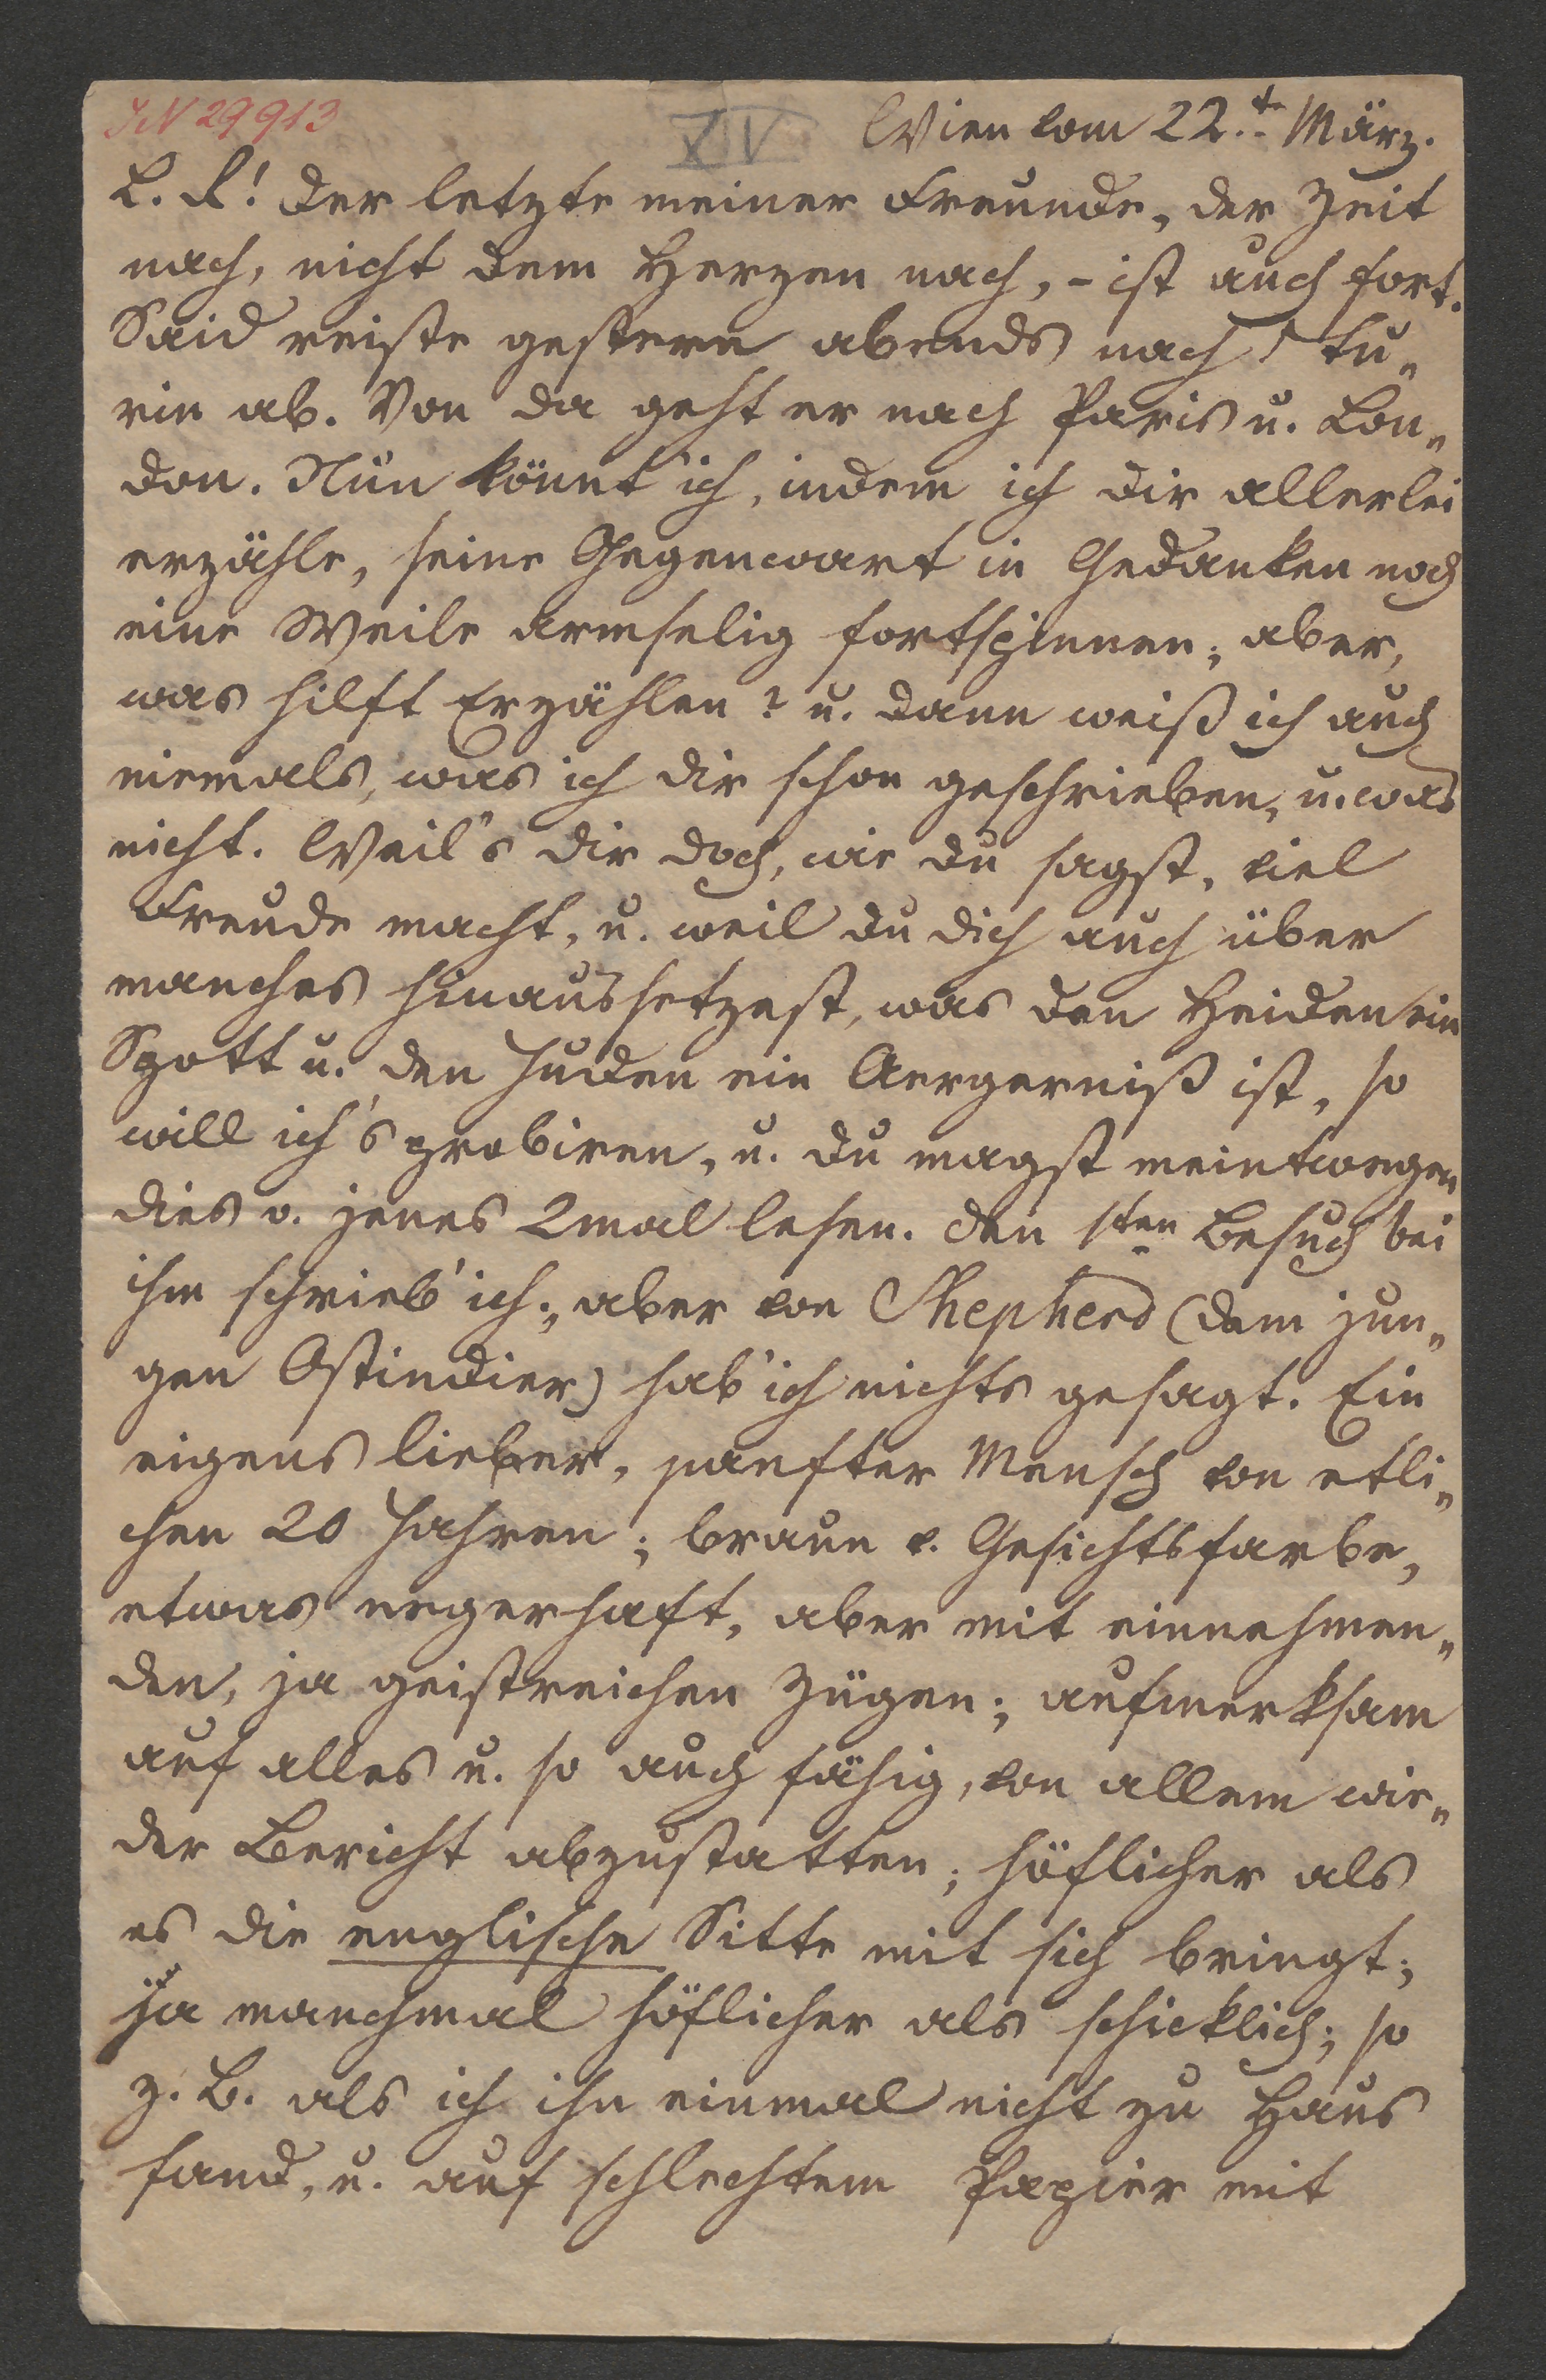 IN 29913
XIV
Wien vom 22.t März.
L. K! Der letzte meiner Freunde, der Zeit
nach, nicht dem Herzen nach, - ist auch fort.
Said reiste gestern abends nach Tu„
rin ab. Von da geht er nach Paris u. Lon„
don. Nun könnt' ich, indem ich dir allerlei
erzähle, seine Gegenwart in Gedanken noch
eine Weile armselig fortspinnen; aber,
was hilft Erzählen? u. dann weiß ich auch
niemals, was ich dir schon geschrieben, u. was
nicht. Weil's dir doch, wie du sagst, viel
Freude macht, u. weil du dich auch über
manches hinaussetzest, was den Heiden ein
Spott u. den Juden ein Aergerniß ist, so
will ich's probiren, u. du magst meintwegen
dies o. jenes 2mal lesen. Den 1ten Besuch bei
ihm schrieb' ich; aber von Shepherd (dem jun„
gen Ostindier) hab' ich nichts gesagt. Ein
eigens lieber, sanfter Mensch von etli„
chen 20 Jahren; braun v. Gesichtsfarbe,
etwas negerhaft, aber mit einnehmen„
den, ja geistreichen Zügen; aufmerksam
auf alles u. so auch fähig, von allem wie„
der Bericht abzustatten; höflicher als
es die englische Sitte mit sich bringt;
ja manchmal höflicher als schicklich; so
z. B. als ich ihn einmal nicht zu Haus
fand, u. auf schlechtem Papier mit